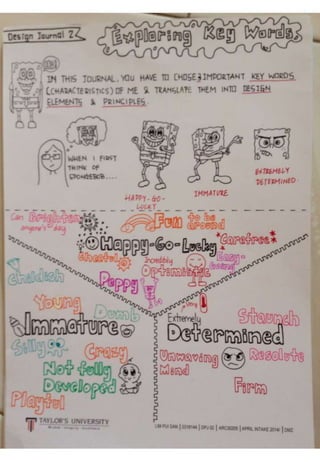 Design Journal 2
Exploring Key Words
IN THIS JOURNAL, YOU HAVE TO CHOSE 3 IMPORTANT KEY WORDS
(CHARACTERISTICS) OF ME & TRANSLATE THEM INTO DESIGN
ELEMENTS & PRINCIPLES.
WHEN I FIRST
THINK OF
SPONGEBOB....
HAPPY-GO-
LUCKY
IMMATURE
EXTREMELY
DETERMINED
Can Brighten
anyone's day
Fun to be
around
Happy-Go-Lucky
*Carefree*
Cheerful
Incredibly
Optimistic
Easy-
Going
Peppy
Childish
Young
Dumb
Immature
Silly
Crazy
Not fully
Developed
Playful
Very
Extremely
Determined
Staunch
Unwaving
Mind
Resolute
Firm
TAYLOR'S UNIVERSITY